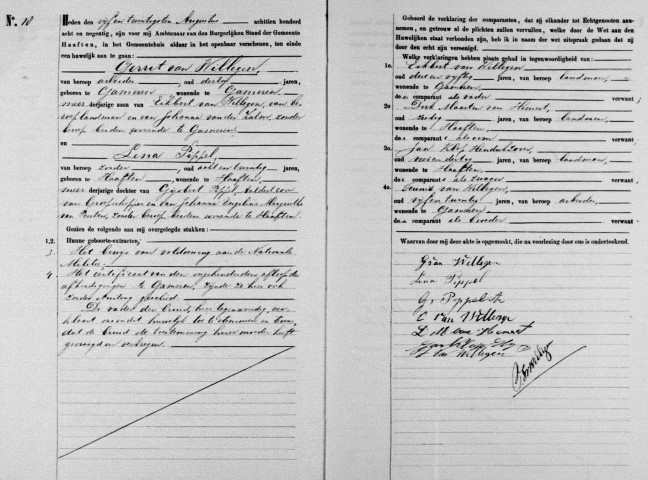 No. 18
Heden den vijf en twintigsten Augustus achttien honderd
acht en negentig, zijn voor mij Ambtenaar van den Burgerlijken Stand der Gemeente
Haaften, in het Gemeentehuis aldaar in het openbaar verschenen, ten einde
een huwelijk aan te gaan:
Gerrit van Willigen,
van beroep arbeider, oud dertig jaren,
geboren te Gameren, wonende te Gameren
meerderjarige zoon van van Willigen, van be
roep landman en van Johanna van der Zalm, zonder
beroep, beiden wonende te Gameren
en
Lena Peppel,
van beroep zonder, oud acht en twintig jaren,
geboren te Haaften, wonende te Haaften,
meerderjarige dochter van Gijsbert Peppel,
van beroep schipper en van Johanna
van zonder beroep, beiden wonende te Haaften.
Gezien de volgende aan mij overgelegde stukken:
1,2. Hunne geboorte-extracten,
3. Het bewijs van voldoening aan de Nationale
Militie,
4. Het certificaat van den onverhinderden afloop der
afkondigingen te Gameren, zijnde die hier ook
zonder stuiting geschied.
De vader der bruid, hier tegenwoordig, ver
klaart in dit huwelijk toe te stemmen en
dat de bruid de toestemming harer moeder heeft
gevraagd en verkregen.
Gehoord de verklaring der comparanten, dat zij elkander tot Echtgenooten aan-
nemen, en getrouw al de plichten zullen vervullen, welke door de Wet aan den
Huwelijken staat verbonden zijn, heb ik in naam der wet uitspraak gedaan dat zij
door den echt zijn vereenigd.
Welke verklaringen hebben plaats gehad in tegenwoordigheid van:
1o. van Willigen
oud drie en vijftig jaren, van beroep landman,
wonende te Gameren,
den comparant als vader verwant;
2o. Dirk Maarten van Hemert,
oud zestig jaren, van beroep landman,
wonende te Haaften
de comparant als oom verwant
3o. Jan
oud dertig jaren, van beroep landman,
wonende te Haaften,
de comparant als zwager verwant
4o. Teunis van Willigen,
oud vijf en twintig jaren, van beroep arbeider,
wonende te Gameren
den comparant als broeder verwant
Waarvan door mij deze akte is opgemaakt, die na voorlezing door ons is onderteekend.
G van Willigen
Lena Peppel
Gs Peppel
C van Willigen
D M van Hemert
Jan
T van Willigen